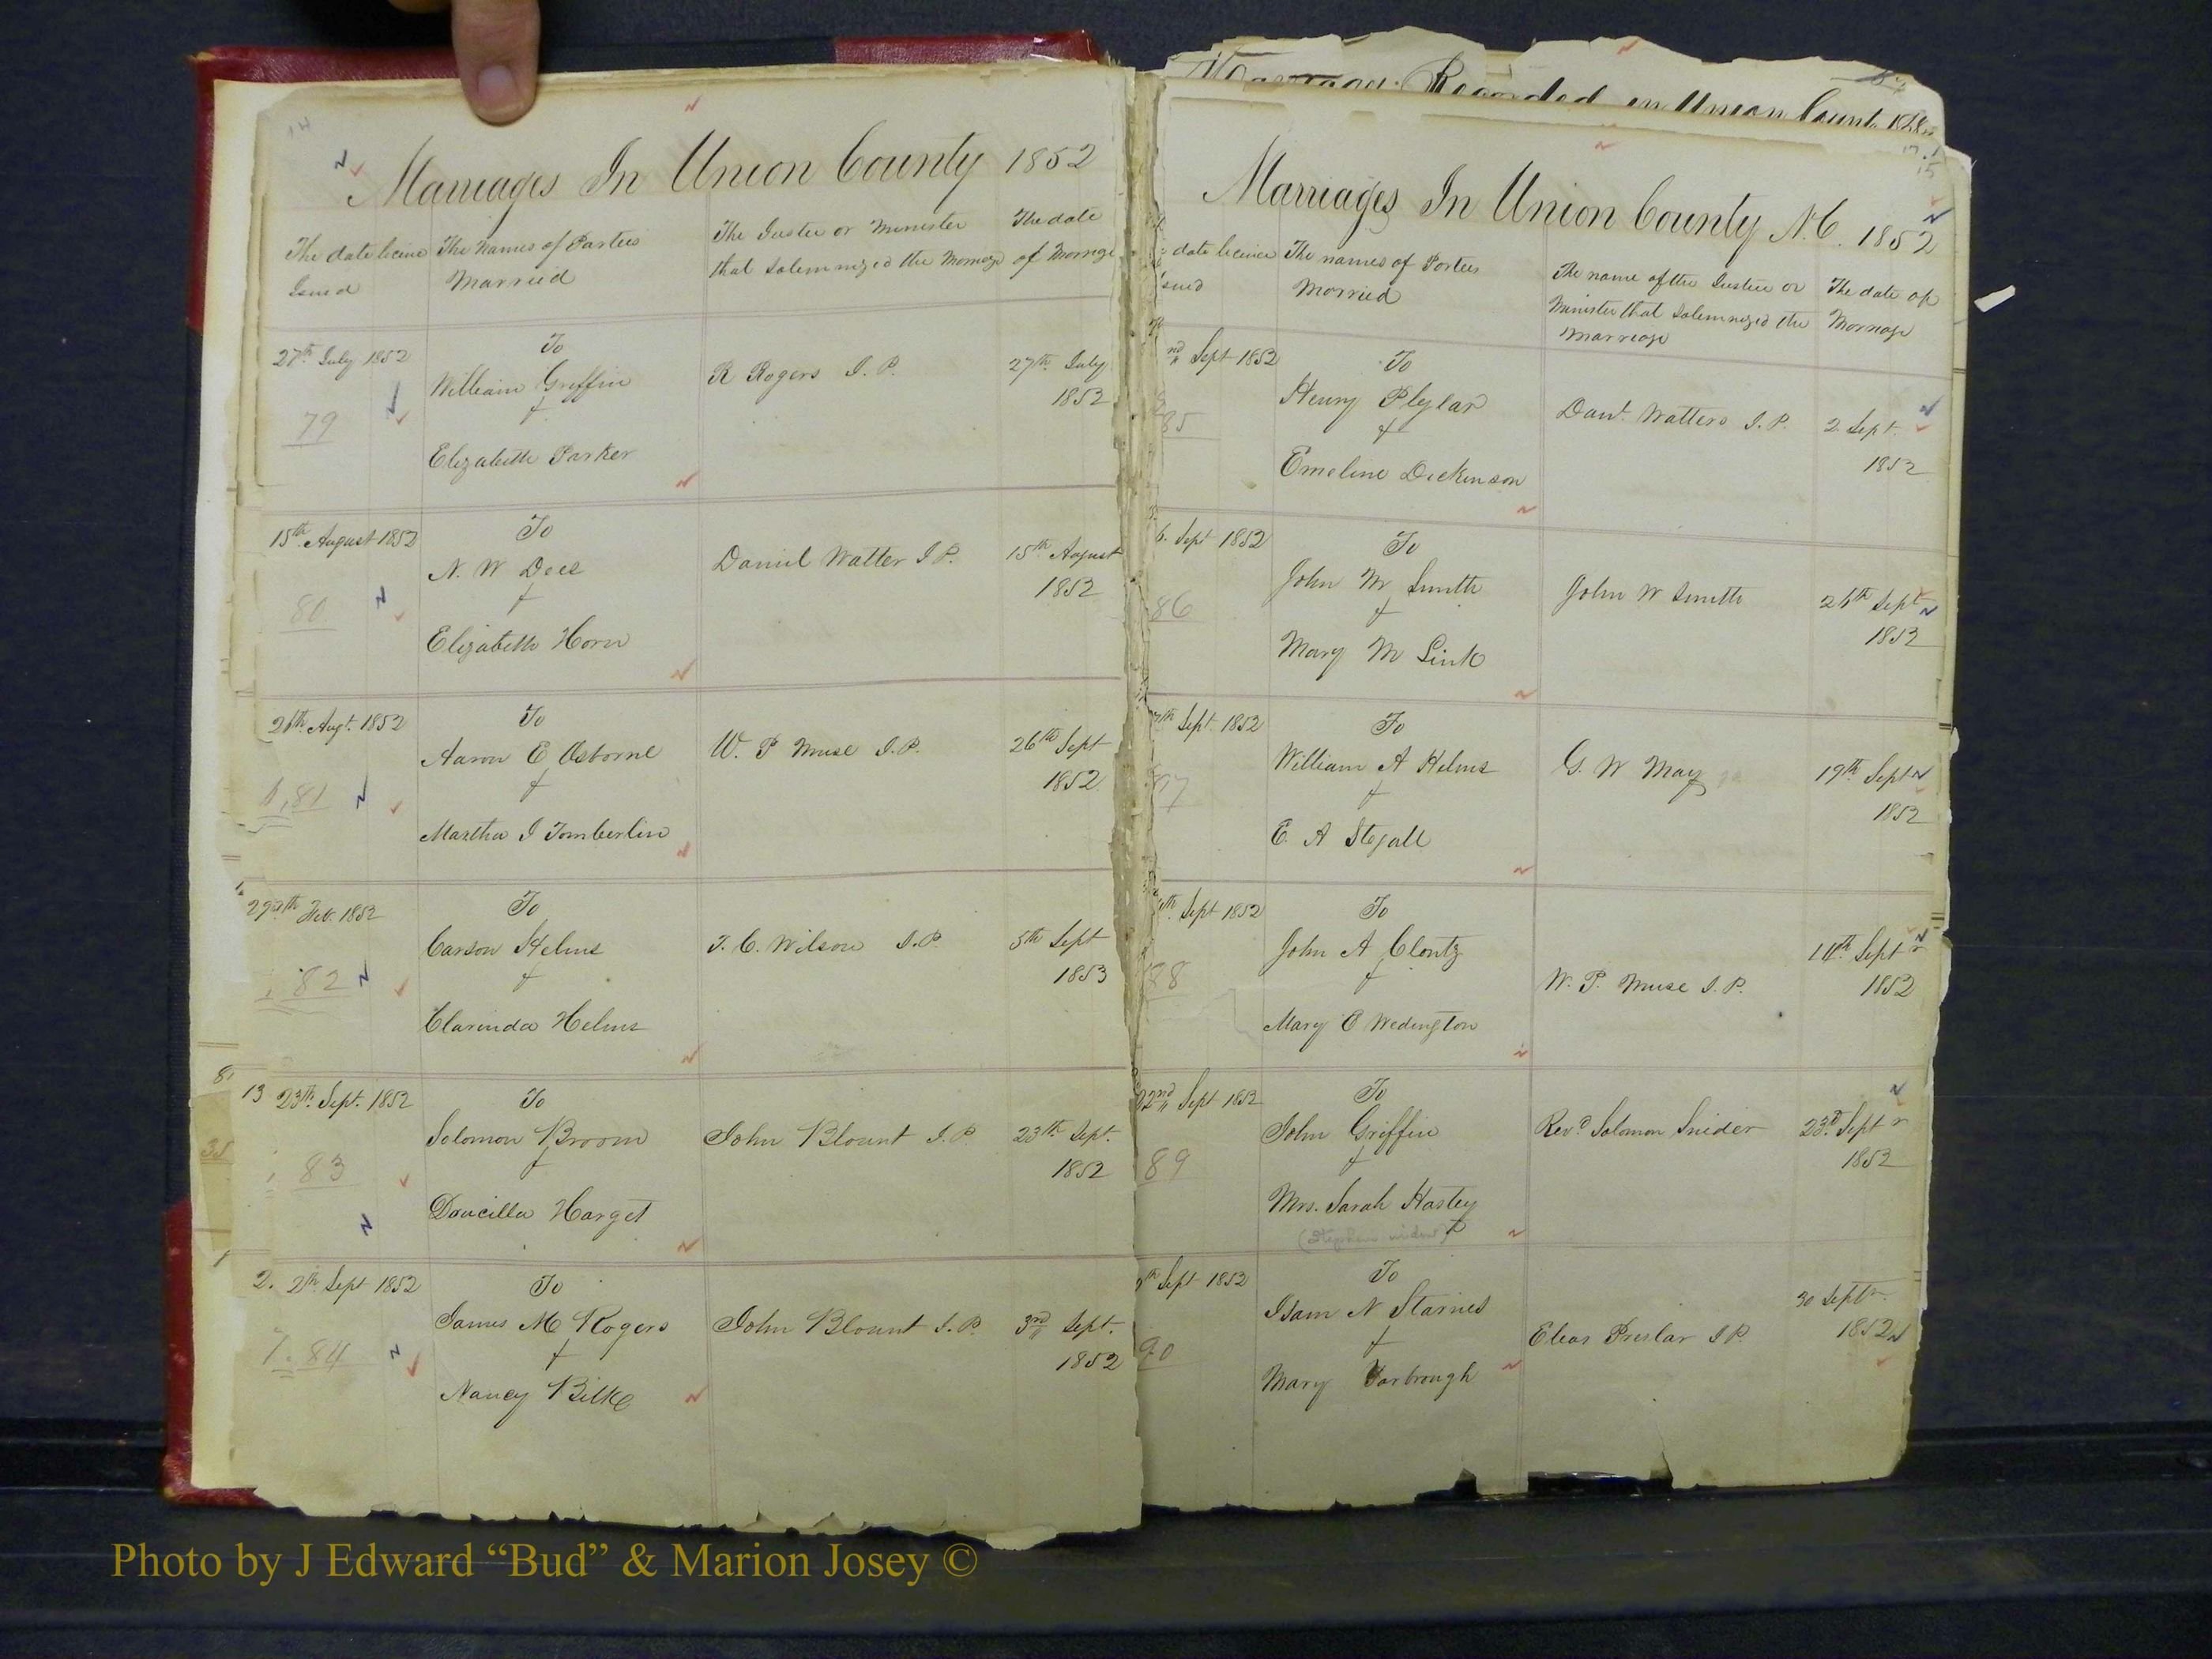 14
Marriages In Union County 1852
The date licence Issued
The Names of Parties Married
The Justice or Minister that Solemnized the Marriage
The date of Marriage
27th July 1852
79
To
William Griffin
&
Elizabeth Parker
R Rogers J. P.
27th July
1852
15th August 1852
80
To
N. W Dees
&
Elizabeth Horn
Daniel Walter J P.
15th August
1852
Augt. 1852
81
To
Aaron E Osborne
&
Martha J Tomberlin
W. P Muse J. P.
26th Sept
1852
Feb. 1852
82
To
Carson Helms
&
Clarinda Helms
T. C. Wilson J. P.
5th Sept
1853
13 23th Sept. 1852
83
To
Solomon Broom
&
Harget
John Blount J. P
23th Sept.
1852
2. 2th Sept 1852
84
To
James M Rogers
&
Nancy Bilke
John Blount J. P.
3rd Sept.
1852
Recorded in Union
15
Marriages In Union County N. C. 1852
date licence
The names of Parties Married
The name of the Justice or Minister that Solemnized the Marriage
The date of Marriage
nd Sept 1852
85
To
Henry Plylar
&
Emeline Dickinson
Danl. Watters J. P.
2 Sept.
1852
6. Sept 1852
86
To
John M Smith
&
Mary M Link
John W Smith
Sept
1852
7th Sept. 1852
87
To
William A Helms
&
E. A Stegall
G. W May
19th Sept
1852
th Sept 1852
88
To
John A Clontz
&
Mary E Wedington
W. P. Muse J. P.
Sept
1852
22nd Sept 1852
89
To
John Griffin
&
Mrs. Sarah Hasley
Revd Solomon Snider
23d Sept
1852
th Sept 1852
90
To
Isam N Starnes
&
Mary Yarbrough
Elias Preslar J P.
30 Sept
1852
Photo by J Edward “Bud” & Marion Josey ©